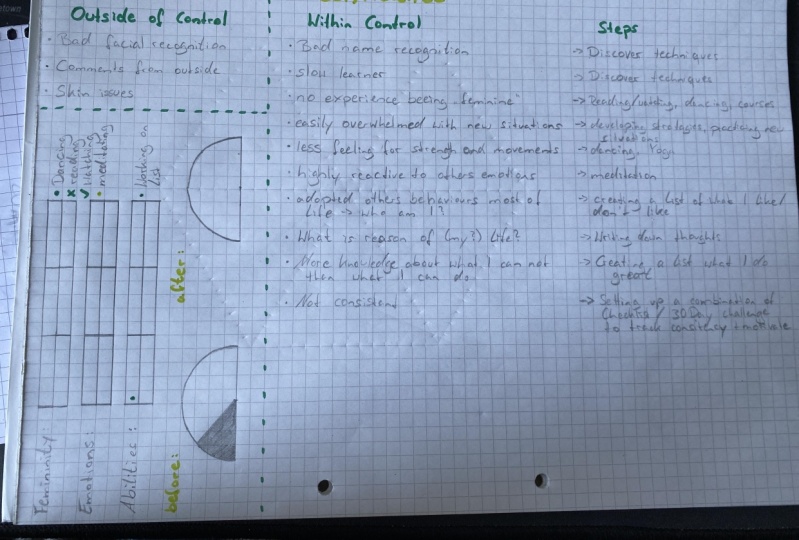 Outside of Control
• Bad facial recognition
• Comments from outside
• Skin issues
Within Control
• Bad name recognition
• slow learner
• no experience beeing "feminine"
• easily overwhelmed with new situations
• less feeling for strength and movements
• highly reactive to others emotions
• adopted others behaviours most of
life -> who am I?
• What is reason of (my?) Life?
• More knowledge about what I can not
than what I can do
• Not consistend
Steps
-> Discover techniques
-> Discover techniques
-> Reading/watching, dancing, courses
-> developing strategies, practising new
situations
-> dancing, Yoga
-> meditation
-> creating a list of what I like/
don't like
-> Writing down thoughts
-> Creating a list what I do
great
-> Setting up a combination of
Checklist / 30 Day challenge
to track consistency + motivate
• Dancing
x reading
watching
• meditating
• Working on
list
Femininity:
Emotions:
Abilities:
before:
after: